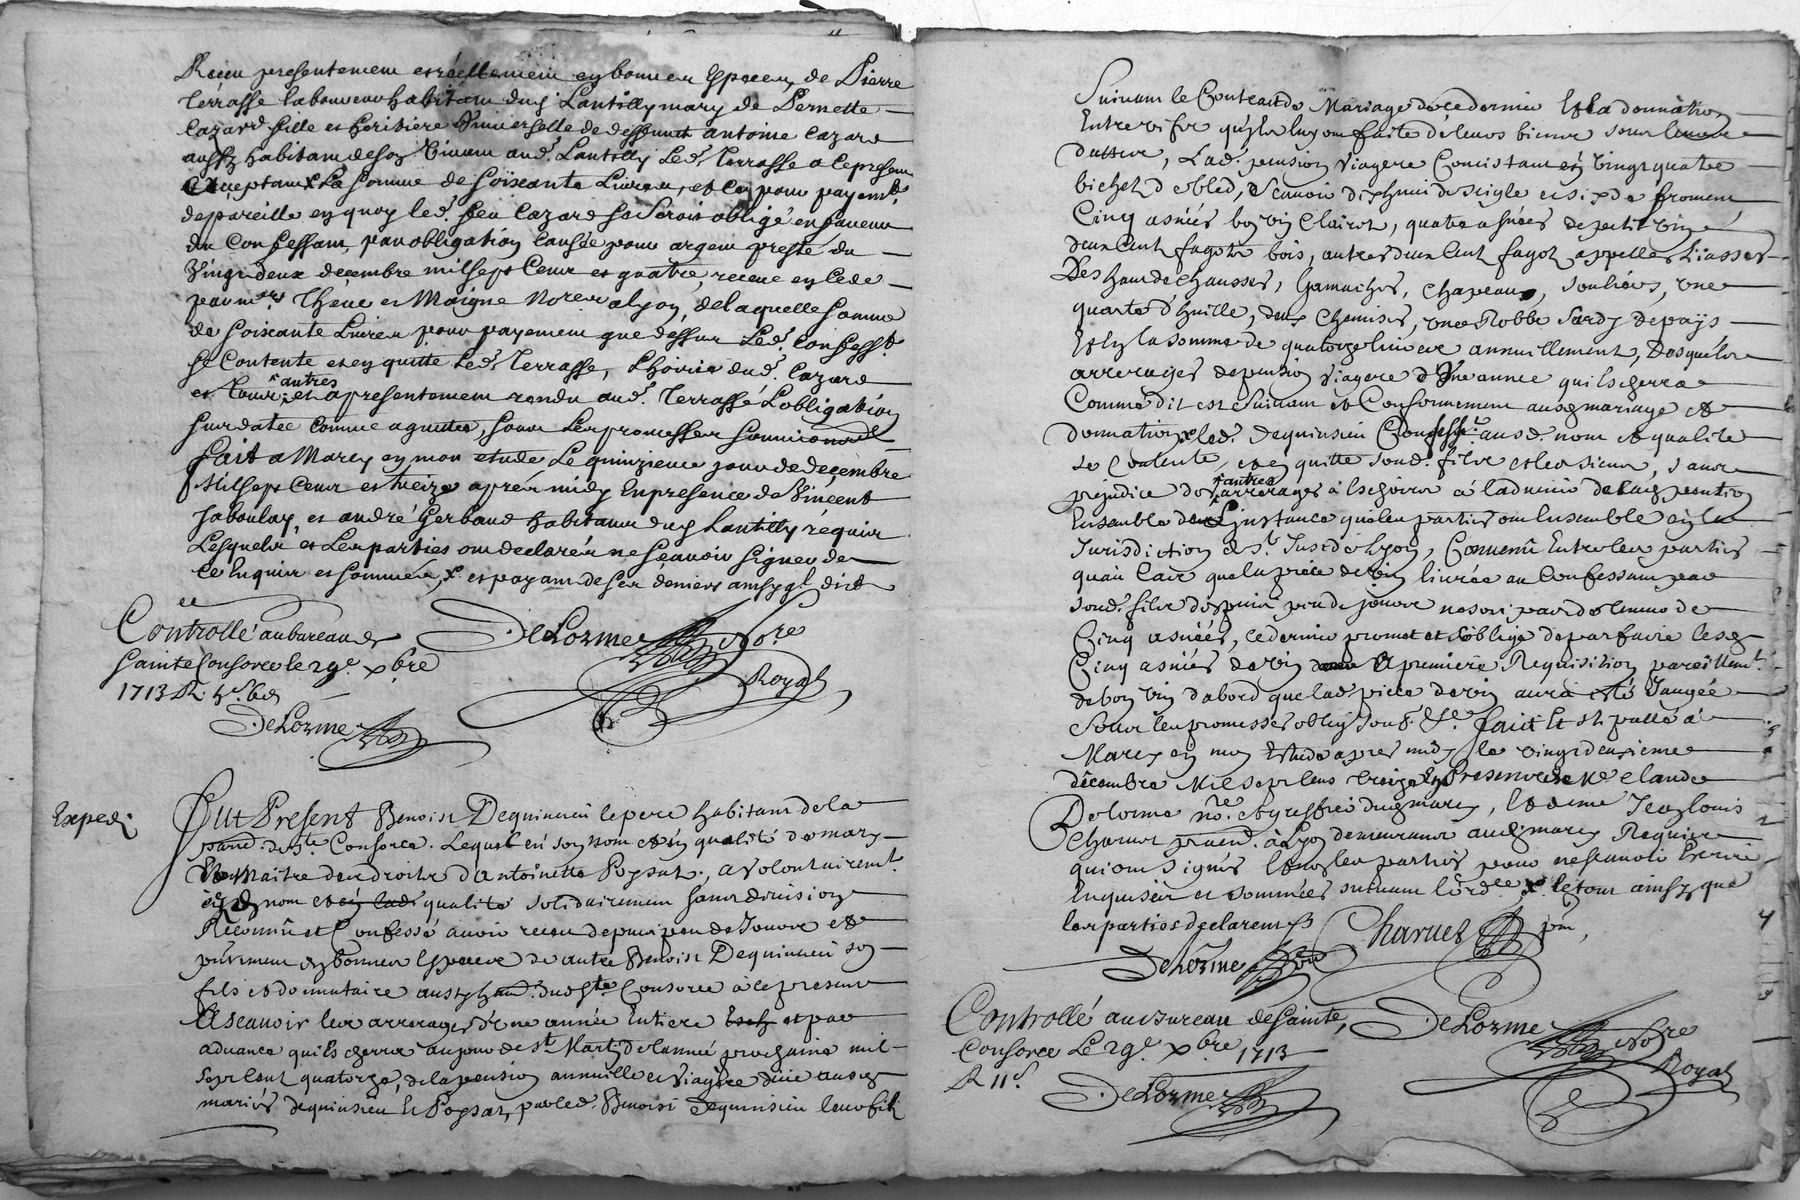 Receu presentement et réellement en bonnes Especes, de Pierre
Terrasse laboureur habitant dud. Lantilly mary de Pernette
Cazard fille et heritiere Universelle de deffunct antoine Cazard
aussy habitant de son Vivant aud. Lantilly led. Terrasse a ce present
acceptant La somme de soixante Livres, et ce pour payemt.
de pareille en quoy led. feu Cazard se seroit obligé en faveur
du Confessant, par obligation causée pour argent presté du
Vingt deux decembre mil sept Cent et quatre, receue en cede
par mes. Théue et Moigne Nores. a lyon, de laquelle somme
de soixante Livres pour payement que dessus Led. Confesst.
se Contente et en quitte Led. Terrasse, L'hoirie dud. Cazard
et tous autres et a presentement rendu aud. Terrasse L'obligation
susdatée comme aquittée, sous Les promesses
fait a Marcy en mon etude Le quinzieme jour de decembre
Mil sept Cent et treize apres midy En presence de Vincent
Jaboulay, et andré Gerbaud habitants dud. Lantilly requis
Lesquels et Les parties ont declarés ne scavoir signer de
ce Enquis et sommés, x et payant de ses deniers ainsy ql. dict
Controllé au bureau de
Sainte Consorce le 29e. xbre
1713 R.
DeLorme
DeLorme Nore
Royal
Exped.
Fut Present Benoist Dequinsieu le pere habitant de la
parr. de Ste. Consorce. Lequel en son nom et en qualité de mary
et Maitre des droits d'antoinette Poysat, a volontairemt.
esd. nom et en lad. qualité solidairement sans division
Reconnu et Confessé avoir receu depuis peu de Jours et
presentement en bonnes Especes de autre Benoist Dequinsieu son
fils et donnataire aussy habt. dud. Ste. Consorce a ce present
Ascavoir les arrerages d'une année Entiere et par
advance qui Escherra au jour de St. Martin de l'année prochaine mil
sept Cent quatorze, de la pension annuelle et Viagere düe ausd.
mariés dequinsieu et Poysat, par led. Benoist dequinsieu leur fils
Suivant le Contract de Mariage de ce dernier Et la donnation
Entre vifs qu'ils luy ont faite de leurs biens sous leur
datte, Lad. pension Viagere Consistant en Vingt quatre
bichets de bled, Scavoir dixhuit de seigle et six de froment,
Cinq asnées bon vin Clairet, quatre asnées de petit vin
deux Cent fagots bois, autres deux Cent fagots appellés Liasses
Des haut de chausses, Gamaches, chapeaux, souliers, une
quarte d'huille, deux Chemises, une Robbe Sardy de païs
Et en la somme de quatorze livres annuellement, Desquels
arrerages de pension Viagere d'Une année qui Escherra
Comme dit est Suivant et Conformement ausd. mariage et
donnation led. Dequinsieu Confesst. ausd. nom et qualité
se Contente, et en quitte sond. fils et les siens, sans
prejudice des autres arrerages a Eschoir a l'advenir de lad. pention
Ensemble de L'instance que les parties ont Ensemble en la
Jurisdiction de St. Just de Lyon, Convenu Entre les parties
qu'au Cas que la piece de vin livrée au Confessant par
sond. fils depuis peu de jours ne soit pas de tenue de
Cinq asnées, ce dernier promet et s'oblige de parfaire lesd.
Cinq asnées de vin a premiere Requisition pareillemt.
de bon vin d'abord que lad. piece de vin aura esté Jaugée
Sous les promesses oblig. soub. &c. fait Et st. pulle a
Marcy en mon Estude apres midy le vingt deuxieme
decembre Mil sept Cens treize En Presence de Me. Claude
Delorme nore. et greffier dud. marcy, Et de me Jean louis
Charvet praticn. a Lyon demeurant aud. marcy Requis
qui ont signés Et non les parties pour ne scavoir Escrire
Enquises et sommées suivant l'ordce., x le tout ainsy que
les parties declarent
Charvet pnt.
DeLorme Nore
Controllé au bureau de Sainte
Consorce Le 29e. xbre 1713
R 11s.
DeLorme
DeLorme Nore
Royal